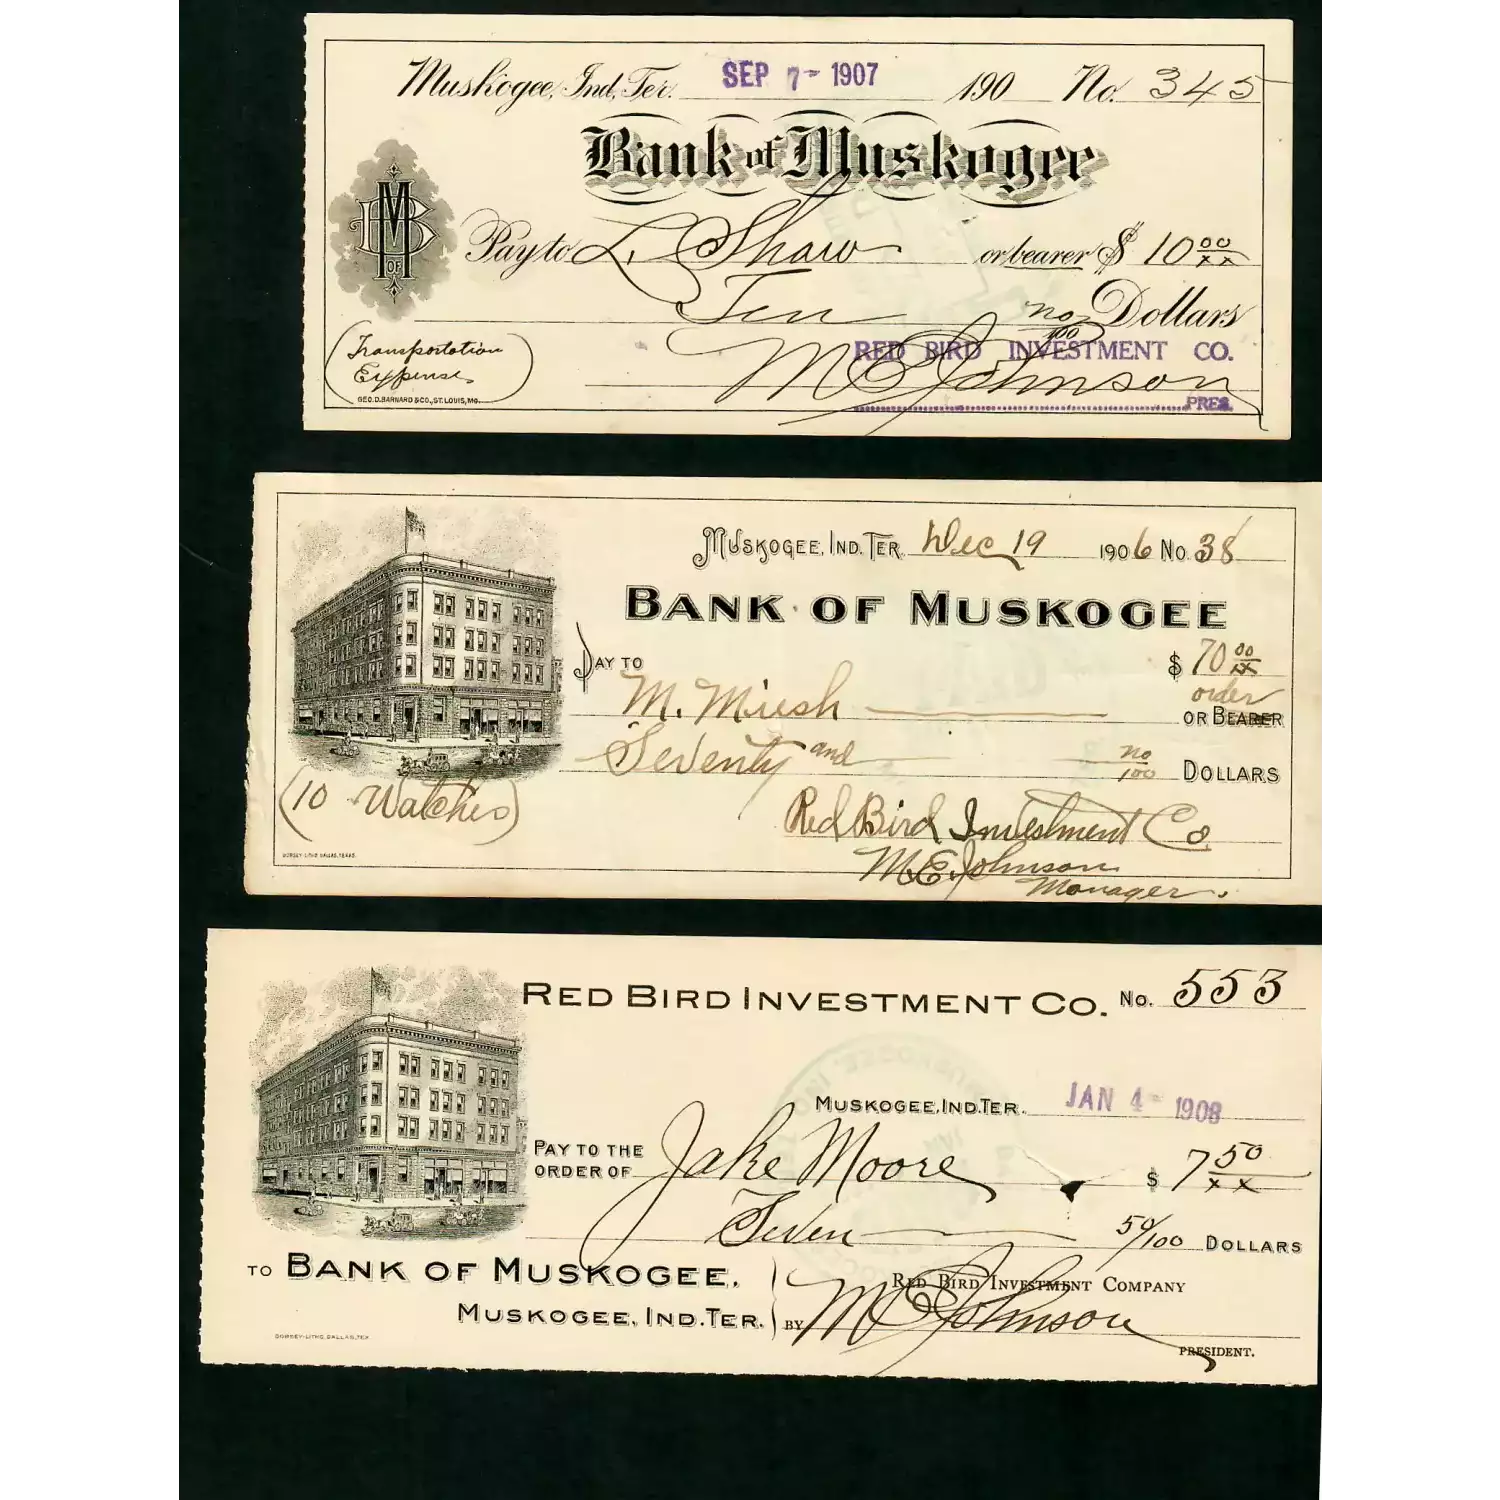 Muskogee, Ind. Ter. SEP 7 - 1907 190 No. 345
Bank of Muskogee
M B OF
Pay to L. Shaw or bearer $ 10 00/xx
Ten no/100 Dollars
Transportation
Expense
RED BIRD INVESTMENT CO.
M E Johnson
PRES.
GEO. D. BARNARD & CO., ST. LOUIS, MO.
MUSKOGEE, IND. TER. Dec 19 1906 No. 38
BANK OF MUSKOGEE
PAY TO $ 70 00/xx
M. Miesh order
OR BEARER
Seventy and no/100 DOLLARS
(10 Watches)
Red Bird Investment Co.
M. E. Johnson
Manager.
DORSEY-LITHO DALLAS, TEXAS.
RED BIRD INVESTMENT CO. No. 553
MUSKOGEE, IND. TER. JAN 4 - 1908
PAY TO THE
ORDER OF Jake Moore $ 7 50/xx
Seven 50/100 DOLLARS
TO BANK OF MUSKOGEE,
MUSKOGEE, IND. TER.
RED BIRD INVESTMENT COMPANY
BY M E Johnson
PRESIDENT.
DORSEY-LITHO, DALLAS, TEX